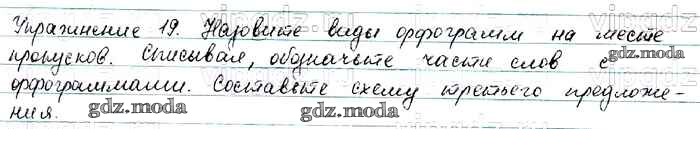 Упражнение 19. Назовите виды орфограмм на месте
пропусков. Списывая, обозначьте части слов с
орфограммами. Составьте схему третьего предложе-
ния.
gdz.moda
gdz.moda
gdz.moda
gdz.moda